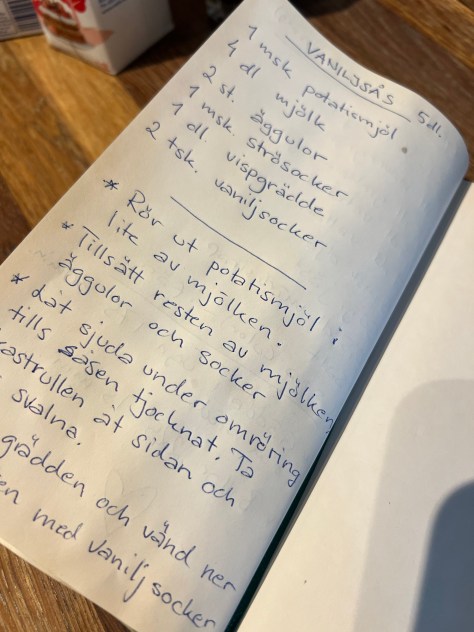 VANILJSÅS 5dl.
1 msk potatismjöl.
4 dl mjölk
2 st. äggulor
1 msk. strösocker
1 dl. vispgrädde
2 tsk. vaniljsocker
* Rör ut potatismjöl i
lite av mjölken.
* Tillsätt resten av mjölken,
äggulor och socker
* Låt sjuda under omröring
tills såsen tjocknat. Ta
kastrullen åt sidan och
svalna.
grädden och vänd ner
med vaniljsocker